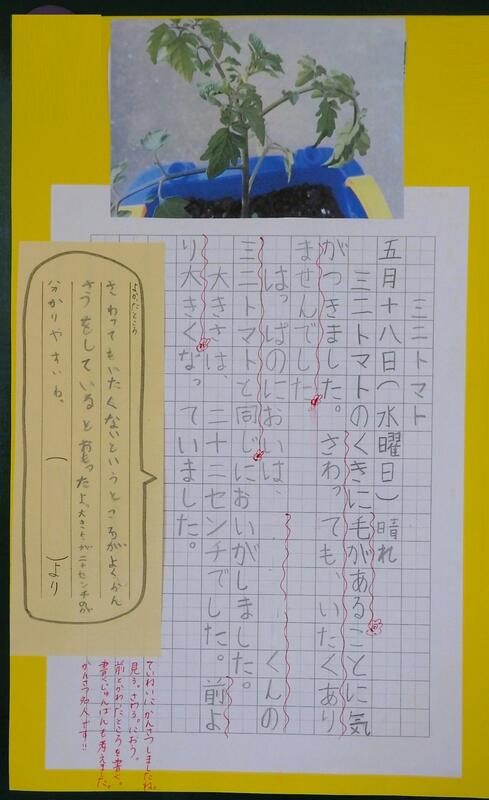 ミニトマト
五月十八日(水曜日)晴れ
ミニトマトのくきに毛があることに気
がつきました。さわっても、いたくあり
ませんでした。
はっぱのにおいは、くんの
ミニトマトと同じにおいがしました。
大きさは、二十二センチでした。前よ
り大きくなっていました。
ていねいにかんさつしましたね。
見る。さわる。におう。
前とかわったところを書く。
書くじゅんばんも考えました。
かんさつ名人です!!
よかったところ
さわってもいたくないというところがよくかん
さつをしているとおもったよ。大きさが二十センチのが
分かりやすいね。
( )より